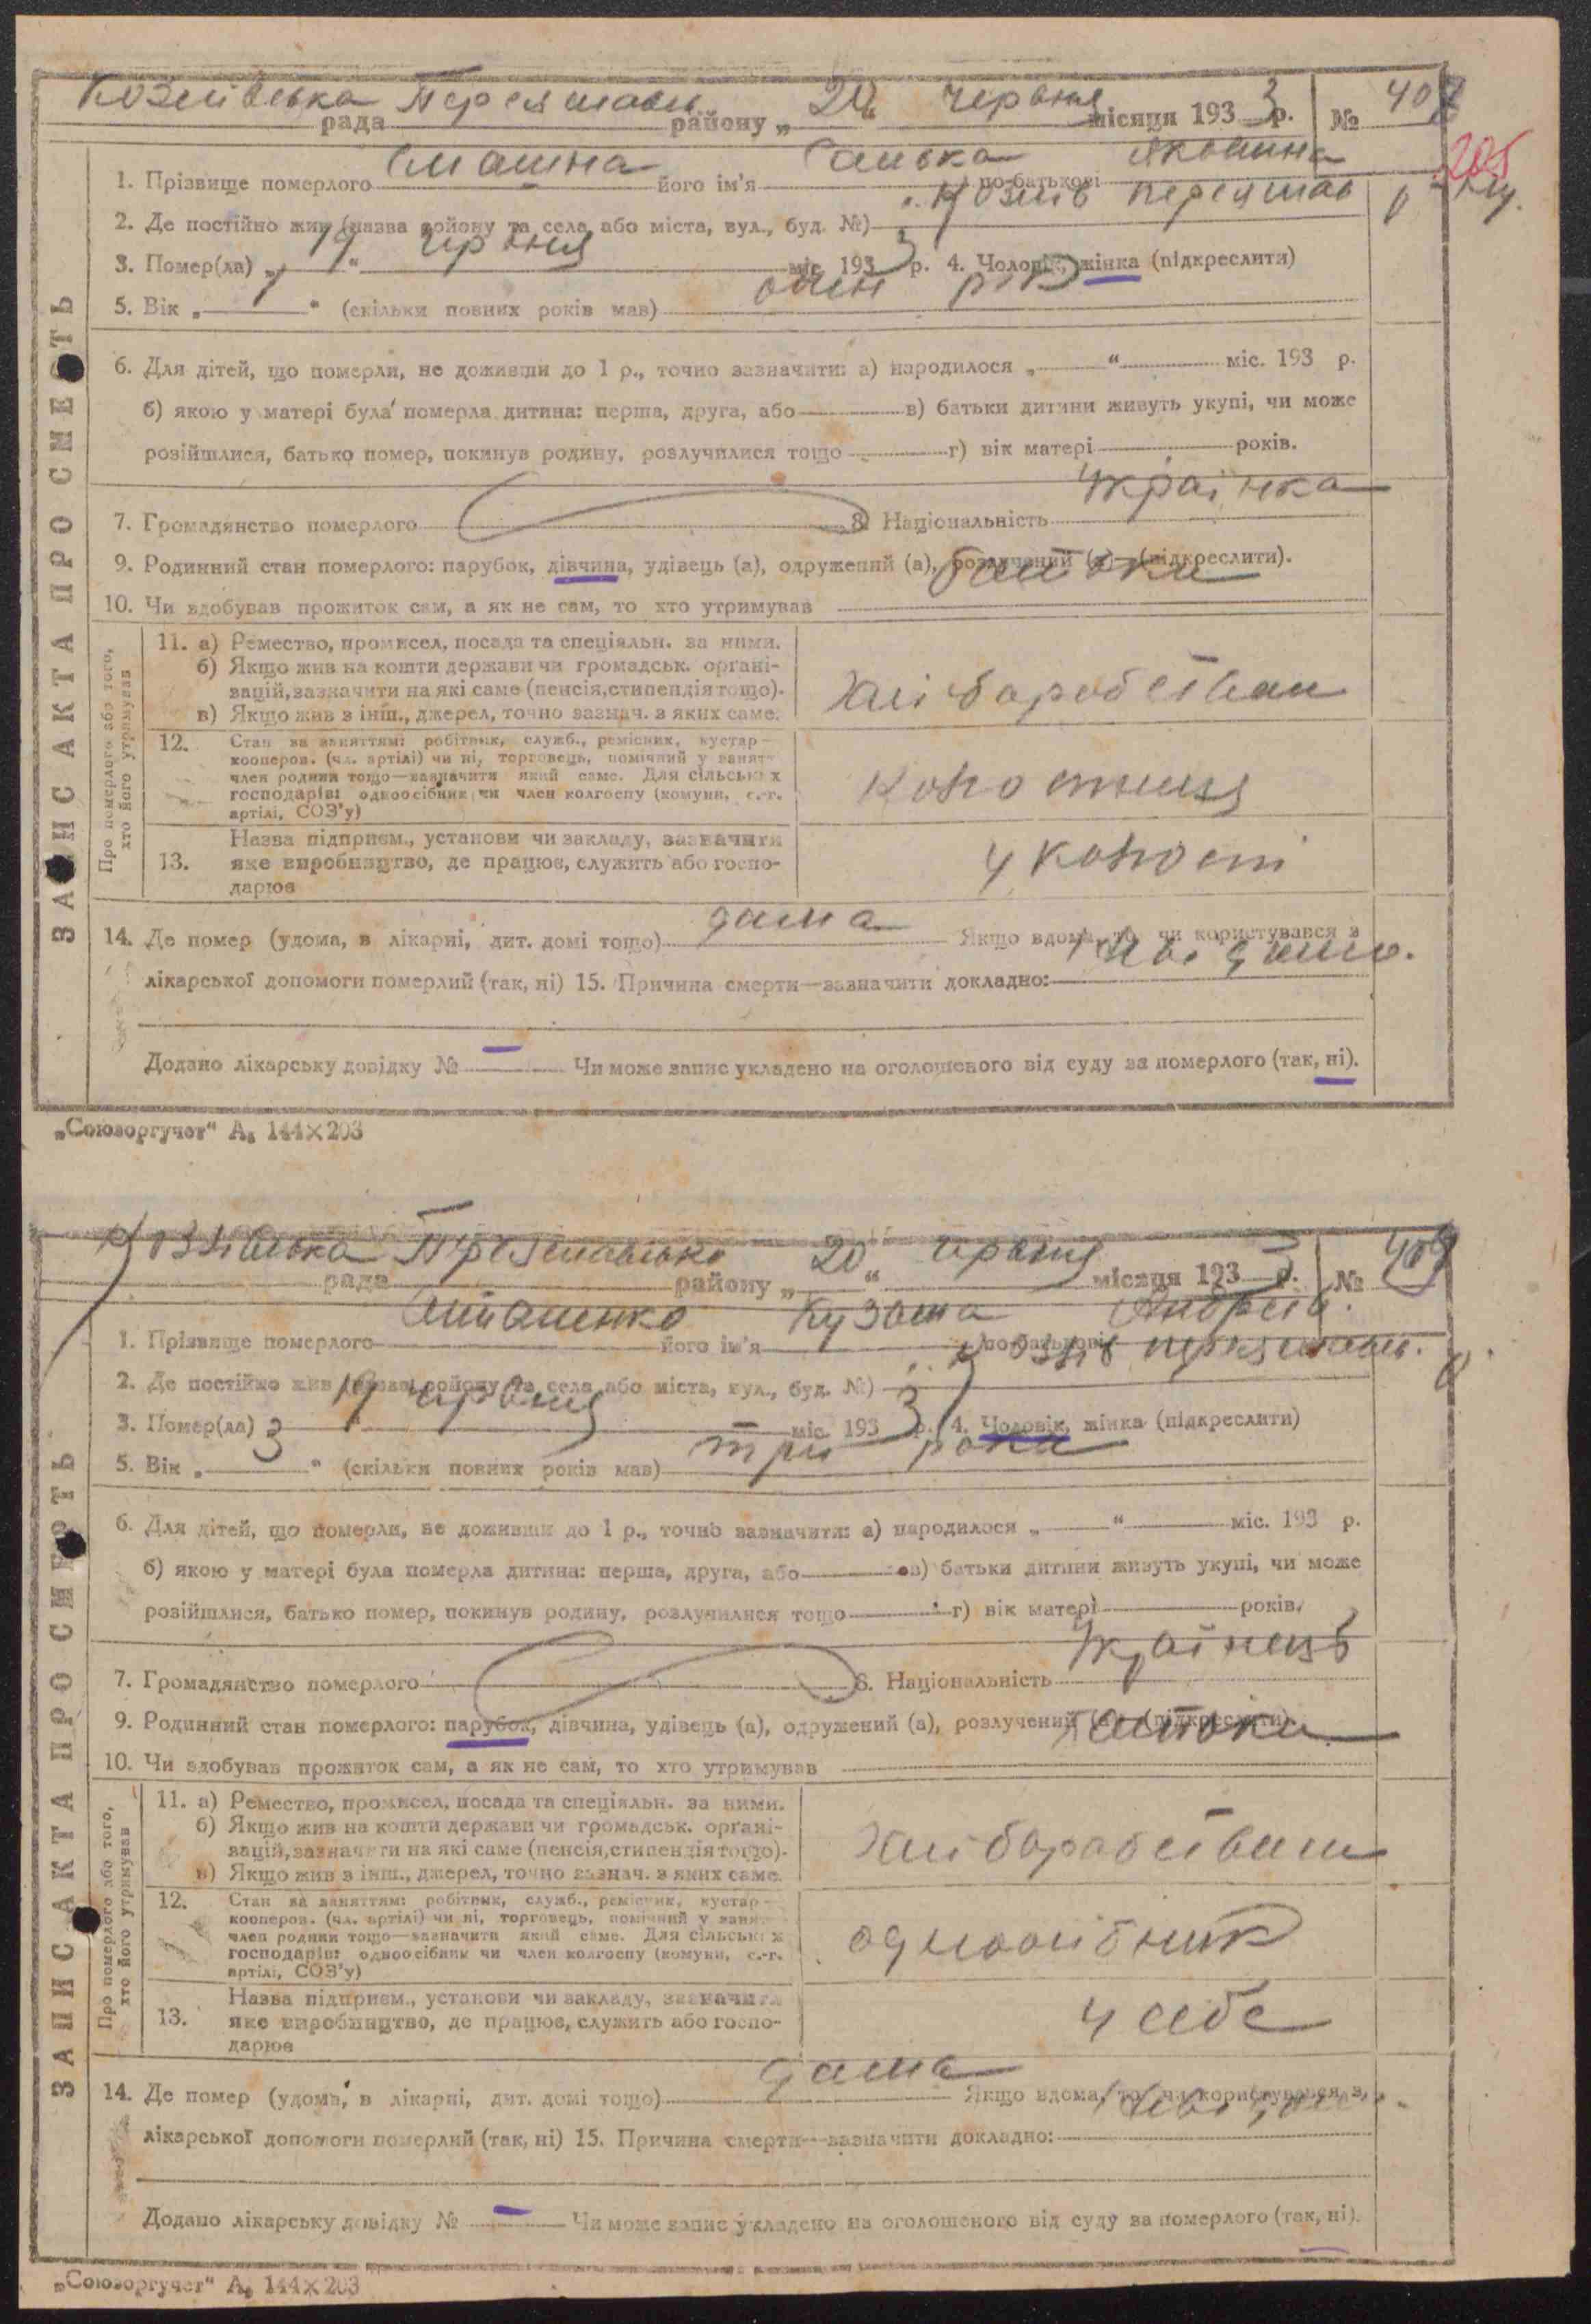 Козлівська Переяславсь. 20 червня 3 № 407
рада району „ “ місяця 193 р.
205
Галька Яковина
1. Прізвище померлого його ім'я по батькові
Козлів Переяслав
2. Де постійно жив (назва району та села або міста, вул., буд. №)
19 червня 3
3. Помер(ла) „ “ міс. 193 р. 4. Чоловік, жінка (підкреслити)
1 один рік
5. Вік „ “ (скільки повних років мав)
6. Для дітей, що померли, не доживши до 1 р., точно зазначити: а) народилося „ “ міс. 193 р.
б) якою у матері була померла дитина: перша, друга, або в) батьки дитини живуть укупі, чи може
розійшлися, батько помер, покинув родину, розлучилися тощо г) вік матері років.
Українка
7. Громадянство померлого 8. Національність
9. Родинний стан померлого: парубок, дівчина, удівець (а), одружений (а), розлучений (а) (підкреслити).
батьки
10. Чи здобував прожиток сам, а як не сам, то хто утримував
Про померлого або того,
хто його утримував
11. а) Ремество, промисел, посада та спеціяльн. за ними.
б) Якщо жив на кошти держави чи громадськ. органі-
зацій, зазначити на які саме (пенсія, стипендія тощо).
в) Якщо жив з інш., джерел, точно зазнач. з яких саме.
Хліборобством
12. Стан за заняттям: робітник, служб., ремісник, кустар—
кооперов. (чл. артілі) чи ні, торговець, помічний у занятт.
член родини тощо—зазначити який саме. Для сільських
господарів: одноосібник чи член колгоспу (комуни, с.-г.
артілі, СОЗ'у)
13. Назва підприєм., установи чи закладу, зазначити
яке виробництво, де працює, служить або госпо-
дарює
дома
14. Де помер (удома, в лікарні, дит. домі тощо) Якщо вдома, то чи користувався з
невідомо.
лікарської допомоги померлий (так, ні) 15. Причина смерти—зазначити докладно:
Додано лікарську довідку № — Чи може запис укладено на оголошеного від суду за померлого (так, ні).
ЗАПИС АКТА ПРО СМЕРТЬ
„Союзоргучет“ А₅ 144×203
Козлівська Переяславсько 20 червня 3 № 409
рада району „ “ місяця 193 р.
Кузьма Андрєєв.
1. Прізвище померлого його ім'я по батькові
Козлів Переяслав.
2. Де постійно жив (назва району та села або міста, вул., буд. №)
19 червня 3
3. Помер(ла) „ “ міс. 193 р. 4. Чоловік, жінка (підкреслити)
3 три рока
5. Вік „ “ (скільки повних років мав)
6. Для дітей, що померли, не доживши до 1 р., точно зазначити: а) народилося „ “ міс. 193 р.
б) якою у матері була померла дитина: перша, друга, або в) батьки дитини живуть укупі, чи може
розійшлися, батько помер, покинув родину, розлучилися тощо г) вік матері років.
Українець
7. Громадянство померлого 8. Національність
9. Родинний стан померлого: парубок, дівчина, удівець (а), одружений (а), розлучений (а) (підкреслити).
батьки
10. Чи здобував прожиток сам, а як не сам, то хто утримував
Про померлого або того,
хто його утримував
11. а) Ремество, промисел, посада та спеціяльн. за ними.
б) Якщо жив на кошти держави чи громадськ. органі-
зацій, зазначити на які саме (пенсія, стипендія тощо).
в) Якщо жив з інш., джерел, точно зазнач. з яких саме.
Хліборобством
12. Стан за заняттям: робітник, служб., ремісник, кустар—
кооперов. (чл. артілі) чи ні, торговець, помічний у занят.
член родини тощо—зазначити який саме. Для сільських
господарів: одноосібник чи член колгоспу (комуни, с.-г.
артілі, СОЗ'у)
одноосібник
13. Назва підприєм., установи чи закладу, зазначити
яке виробництво, де працює, служить або госпо-
дарює
у себе
дома
14. Де помер (удома, в лікарні, дит. домі тощо) Якщо вдома, то чи користувався з
невідомо.
лікарської допомоги померлий (так, ні) 15. Причина смерти—зазначити докладно:
Додано лікарську довідку № — Чи може запис укладено на оголошеного від суду за померлого (так, ні).
ЗАПИС АКТА ПРО СМЕРТЬ
„Союзоргучет“ А₅ 144×203